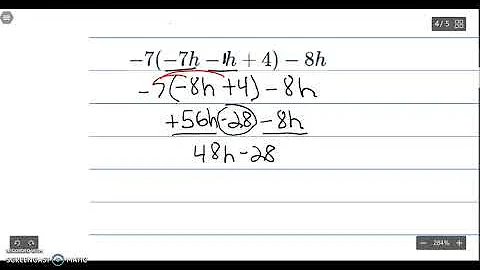 4 / 5
-7(-7h -1h + 4) - 8h
-7(-8h+4)-8h
+56h-28-8h
48h-28
RECORDED WITH
SCREENCAST MATIC
- 284% +